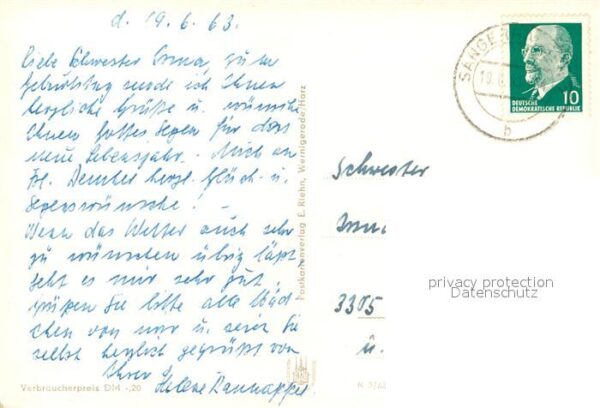 d. 19.6.63.
Liebe Schwester Irma, zu Ihrem
Geburtstag sende ich Ihnen
herzliche Grüße u. wünsche
Ihnen Gottes Segen für das
neue Lebensjahr. Auch an
Frl. herzl. Glück- u.
Segenswünsche! -
Wenn das Wetter auch sehr
zu wünschen übrig läßt,
geht es mir sehr gut.
grüßen Sie bitte alle Mäd-
chen von mir u. seien Sie
selbst herzlich gegrüßt von
Ihrer Helene
Verbraucherpreis DM -,20
Postkartenverlag E. Riehn, Wernigerode/Harz
SANGE
19.6.
b
10
DEUTSCHE
DEMOKRATISCHE REPUBLIK
Schwester
Irm
3305
u.
privacy protection
Datenschutz